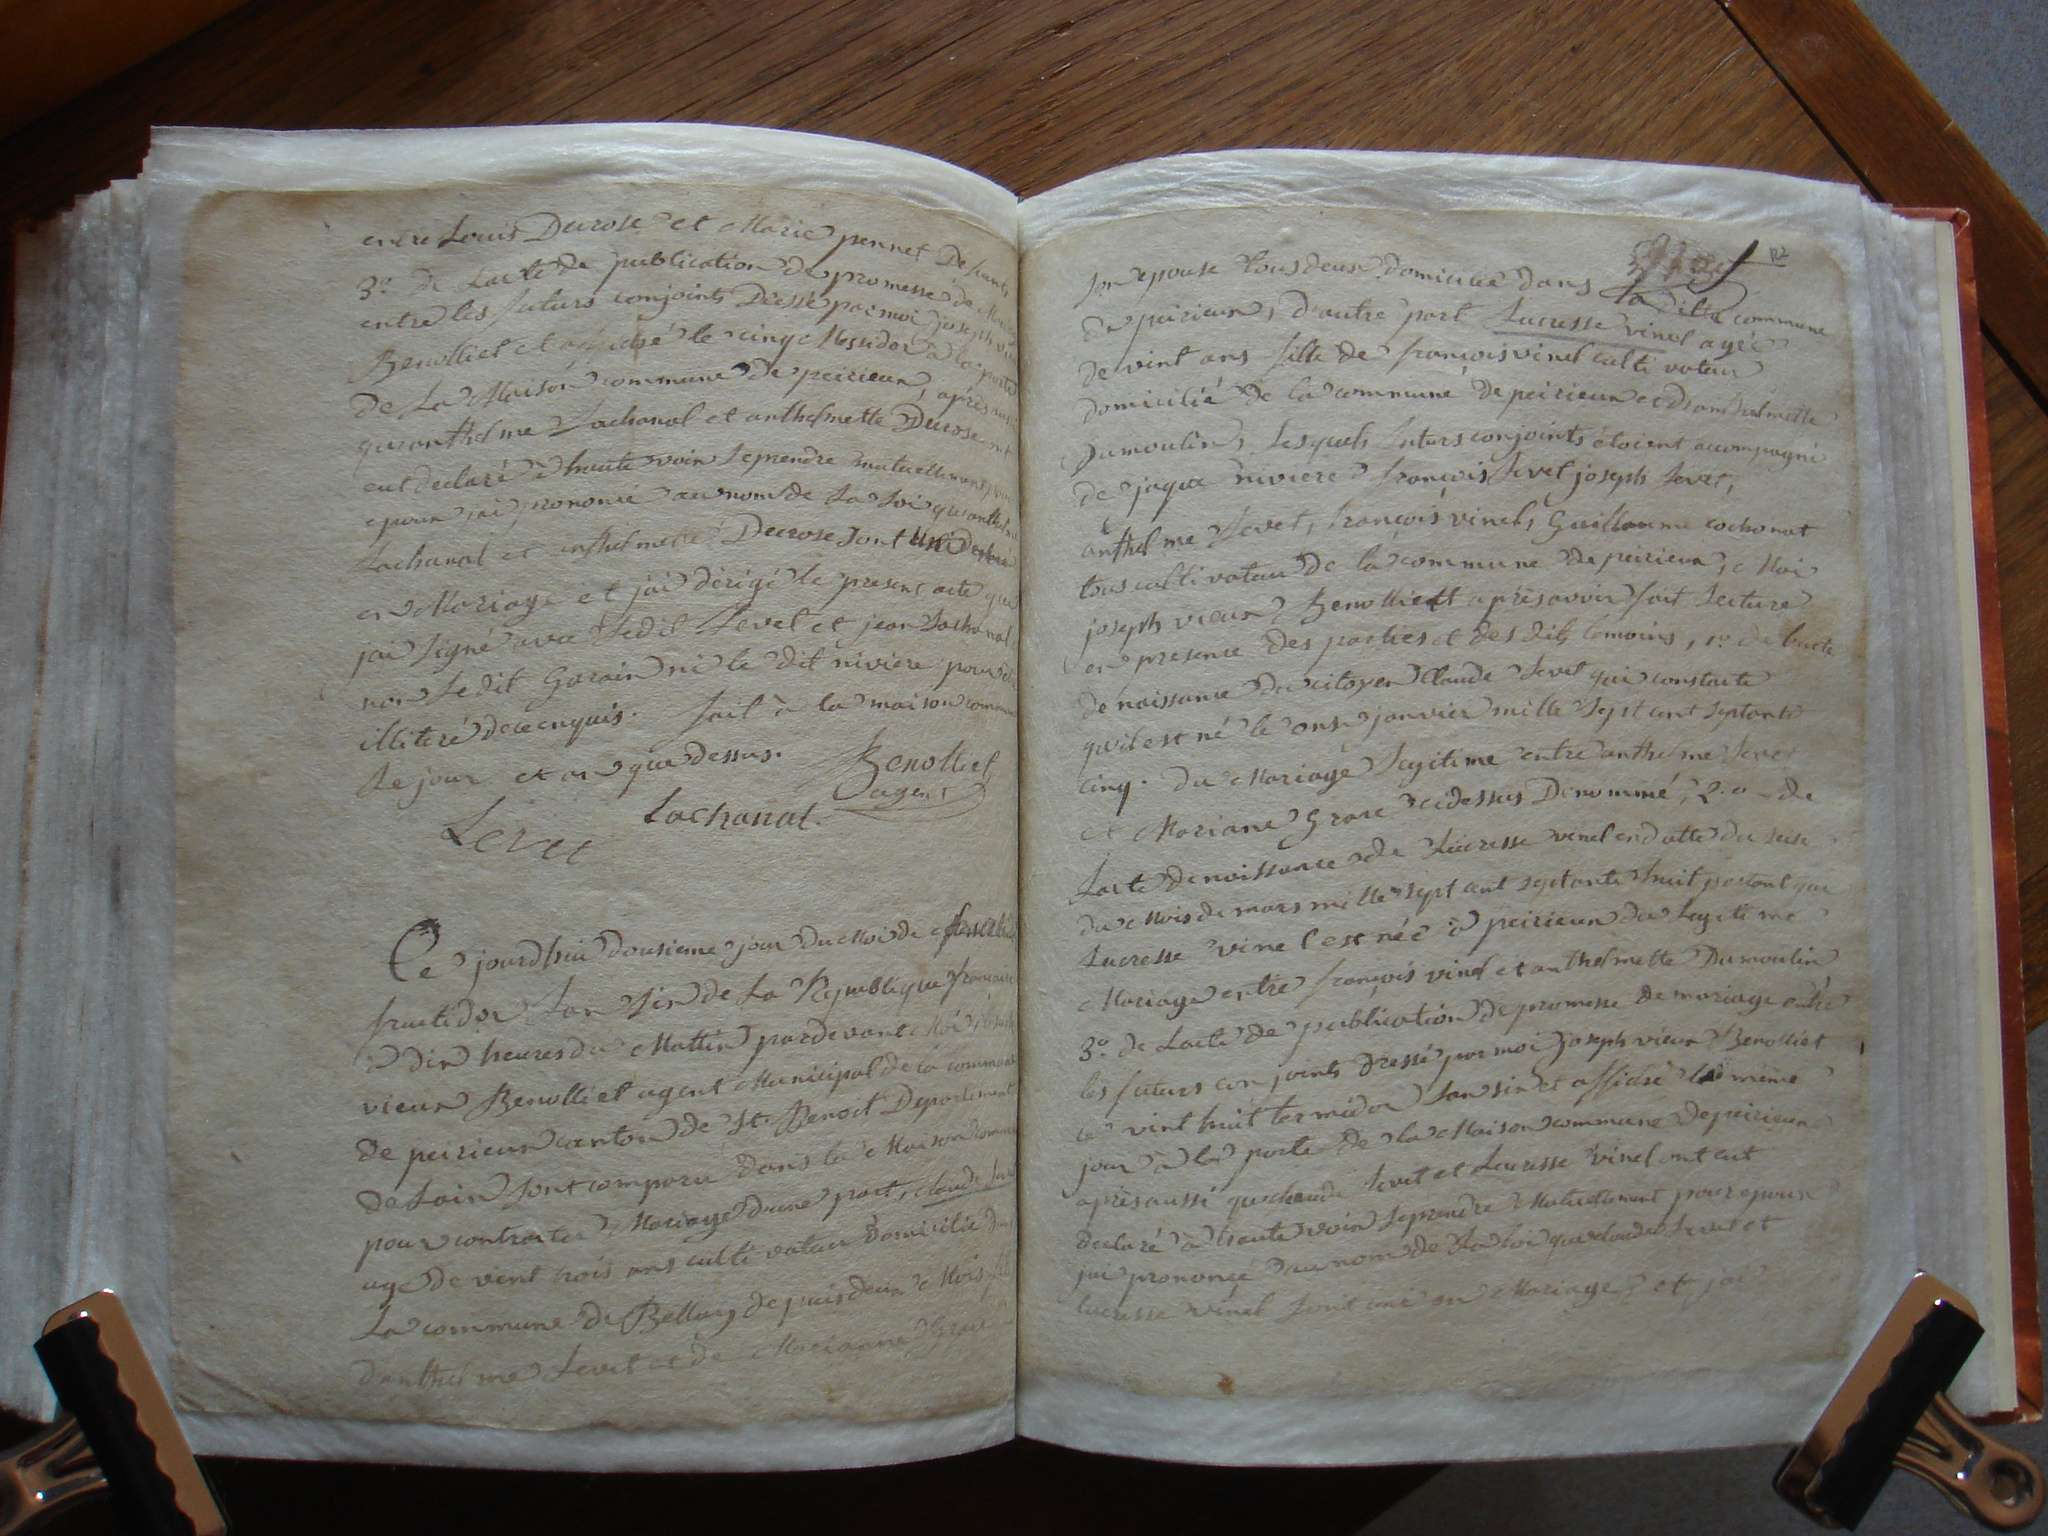 entre Louis Ducrose et Marie pennet Defunts
3.o de Lacte de publication de promesse de Maria
entre les futurs conjoints Dressé par moi joseph vi
Benolliet et affiché le cinq Mesidor à la porte
de La Maison commune de peirieux, après aussi
qu'anthelme Lachanal et anthelmette Ducrose ont
eut declaré à haute voix Seprendre mutuellement pour
epoux jai prononcé au nom de La Loi qu'anthelme
Lachanal et anthelmette Ducrose sont uni
en Mariage et jai dérigé le present acte que
jai signé avec Ledit Levet et jean Lachanal
non Ledit Garain ni le dit riviere pour
illiteré de ce enquis. fait à la maison commune
Le jour et an que dessus.
Benolliet
agent
Lachanal.
Levet
Ce jourdhui dousieme jour du Moi de
fructidor Lan Six de La Republique francaise
à dix heures du Mattin pardevant Moi joseph
vieux Benolliet agent Municipal de la commune
de peirieux canton de St. Benoit Departement
de Lain sont comparu dans la Maison commune
pour contracter Mariage dune part, claude Levet
agé de vint trois ans cultivateur domicilié dans
La commune de Belley depuis deux Mois fils
danthelme Levet et de Marianne Grare
12
son epouse tous deux domicilié dans la ditte commune
de peirieux, d'autre part Lucresse vinel agée
de vint ans fille de françois vinel cultivateur
domicilié de la commune de peirieux et danthelmette
Dumoulin, Lesquels futurs conjoints étoient accompagné
de jaque riviere françois Levet joseph Levet,
anthelme Levet, françois vinel, Guillaume cochonat
tous cultivateur de la commune de peirieux, Moi
joseph vieux Benolliet après avoir fait Lecture
en presence des parties et des dits temoins, 1.o de lacte
de naissance du citoyen Claude Levet qui constate
qu'il est né le onze janvier mille sept cent septante
cinq. du Mariage Legitime entre anthelme Levet
et Mariane Grare cidessus Denommé, 2.o de
Lacte de naissance de Lucresse vinel en datte du seise
du Mois de mars mille sept cent septante huit portant que
Lucresse vinel est née à peirieux du Legitime
Mariage entre françois vinel et anthelmette Dumoulin
3.o de Lacte de publication de promesse de mariage entre
les futurs conjoints dressé par moi joseph vieux Benolliet
le vint huit termidor Lan six et affiché le même
jour à la porte de la Maison commune de peirieux
après aussi que claude Levet et Lucresse vinel ont eut
declaré à haute voix Seprendre Mutuellement pour epoux
jai prononcé au nom de La Loi que claude Levet et
lucresse vinel sont uni en Mariage et jai